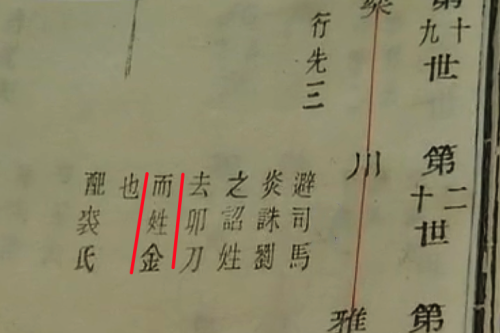 第十九世
行先三
第二十世
川
避司馬
炎誅劉
之詔姓
去卯刀
而姓金
也
配裴氏
第
雅